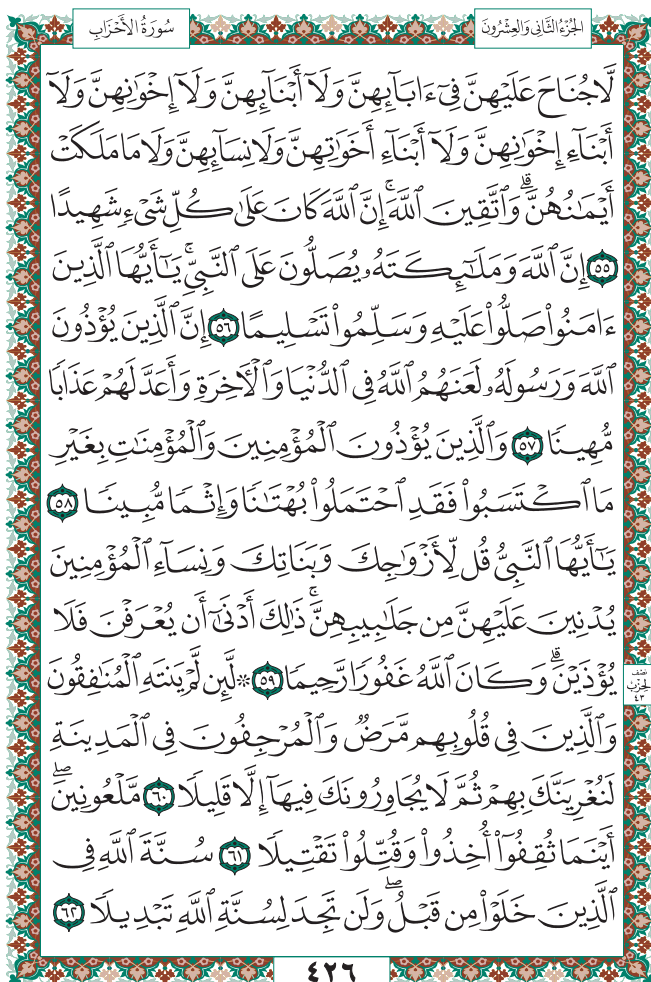 سُورَةُ الأَحْزَابِ
الجُزْءُ الثَّانِي وَالعِشْرُونَ
لَّا جُنَاحَ عَلَيۡهِنَّ فِيٓ ءَابَآئِهِنَّ وَلَآ أَبۡنَآئِهِنَّ وَلَآ إِخۡوَٰنِهِنَّ وَلَآ
أَبۡنَآءِ إِخۡوَٰنِهِنَّ وَلَآ أَبۡنَآءِ أَخَوَٰتِهِنَّ وَلَا نِسَآئِهِنَّ وَلَا مَا مَلَكَتۡ
أَيۡمَٰنُهُنَّۗ وَٱتَّقِينَ ٱللَّهَۚ إِنَّ ٱللَّهَ كَانَ عَلَىٰ كُلِّ شَيۡءٖ شَهِيدًا
٥٥ إِنَّ ٱللَّهَ وَمَلَٰٓئِكَتَهُۥ يُصَلُّونَ عَلَى ٱلنَّبِيِّۚ يَٰٓأَيُّهَا ٱلَّذِينَ
ءَامَنُواْ صَلُّواْ عَلَيۡهِ وَسَلِّمُواْ تَسۡلِيمًا ٥٦ إِنَّ ٱلَّذِينَ يُؤۡذُونَ
ٱللَّهَ وَرَسُولَهُۥ لَعَنَهُمُ ٱللَّهُ فِي ٱلدُّنۡيَا وَٱلۡأٓخِرَةِ وَأَعَدَّ لَهُمۡ عَذَابٗا
مُّهِينٗا ٥٧ وَٱلَّذِينَ يُؤۡذُونَ ٱلۡمُؤۡمِنِينَ وَٱلۡمُؤۡمِنَٰتِ بِغَيۡرِ
مَا ٱكۡتَسَبُواْ فَقَدِ ٱحۡتَمَلُواْ بُهۡتَٰنٗا وَإِثۡمٗا مُّبِينٗا ٥٨
يَٰٓأَيُّهَا ٱلنَّبِيُّ قُل لِّأَزۡوَٰجِكَ وَبَنَاتِكَ وَنِسَآءِ ٱلۡمُؤۡمِنِينَ
يُدۡنِينَ عَلَيۡهِنَّ مِن جَلَٰبِيبِهِنَّۚ ذَٰلِكَ أَدۡنَىٰٓ أَن يُعۡرَفۡنَ فَلَا
يُؤۡذَيۡنَۗ وَكَانَ ٱللَّهُ غَفُورٗا رَّحِيمٗا ٥٩ ۞ لَّئِن لَّمۡ يَنتَهِ ٱلۡمُنَٰفِقُونَ
نِصْف
الحِزْب
٤٣
وَٱلَّذِينَ فِي قُلُوبِهِم مَّرَضٞ وَٱلۡمُرۡجِفُونَ فِي ٱلۡمَدِينَةِ
لَنُغۡرِيَنَّكَ بِهِمۡ ثُمَّ لَا يُجَاوِرُونَكَ فِيهَآ إِلَّا قَلِيلٗا ٦٠ مَّلۡعُونِينَۖ
أَيۡنَمَا ثُقِفُوٓاْ أُخِذُواْ وَقُتِّلُواْ تَقۡتِيلٗا ٦١ سُنَّةَ ٱللَّهِ فِي
ٱلَّذِينَ خَلَوۡاْ مِن قَبۡلُۖ وَلَن تَجِدَ لِسُنَّةِ ٱللَّهِ تَبۡدِيلٗا ٦٢
٤٢٦